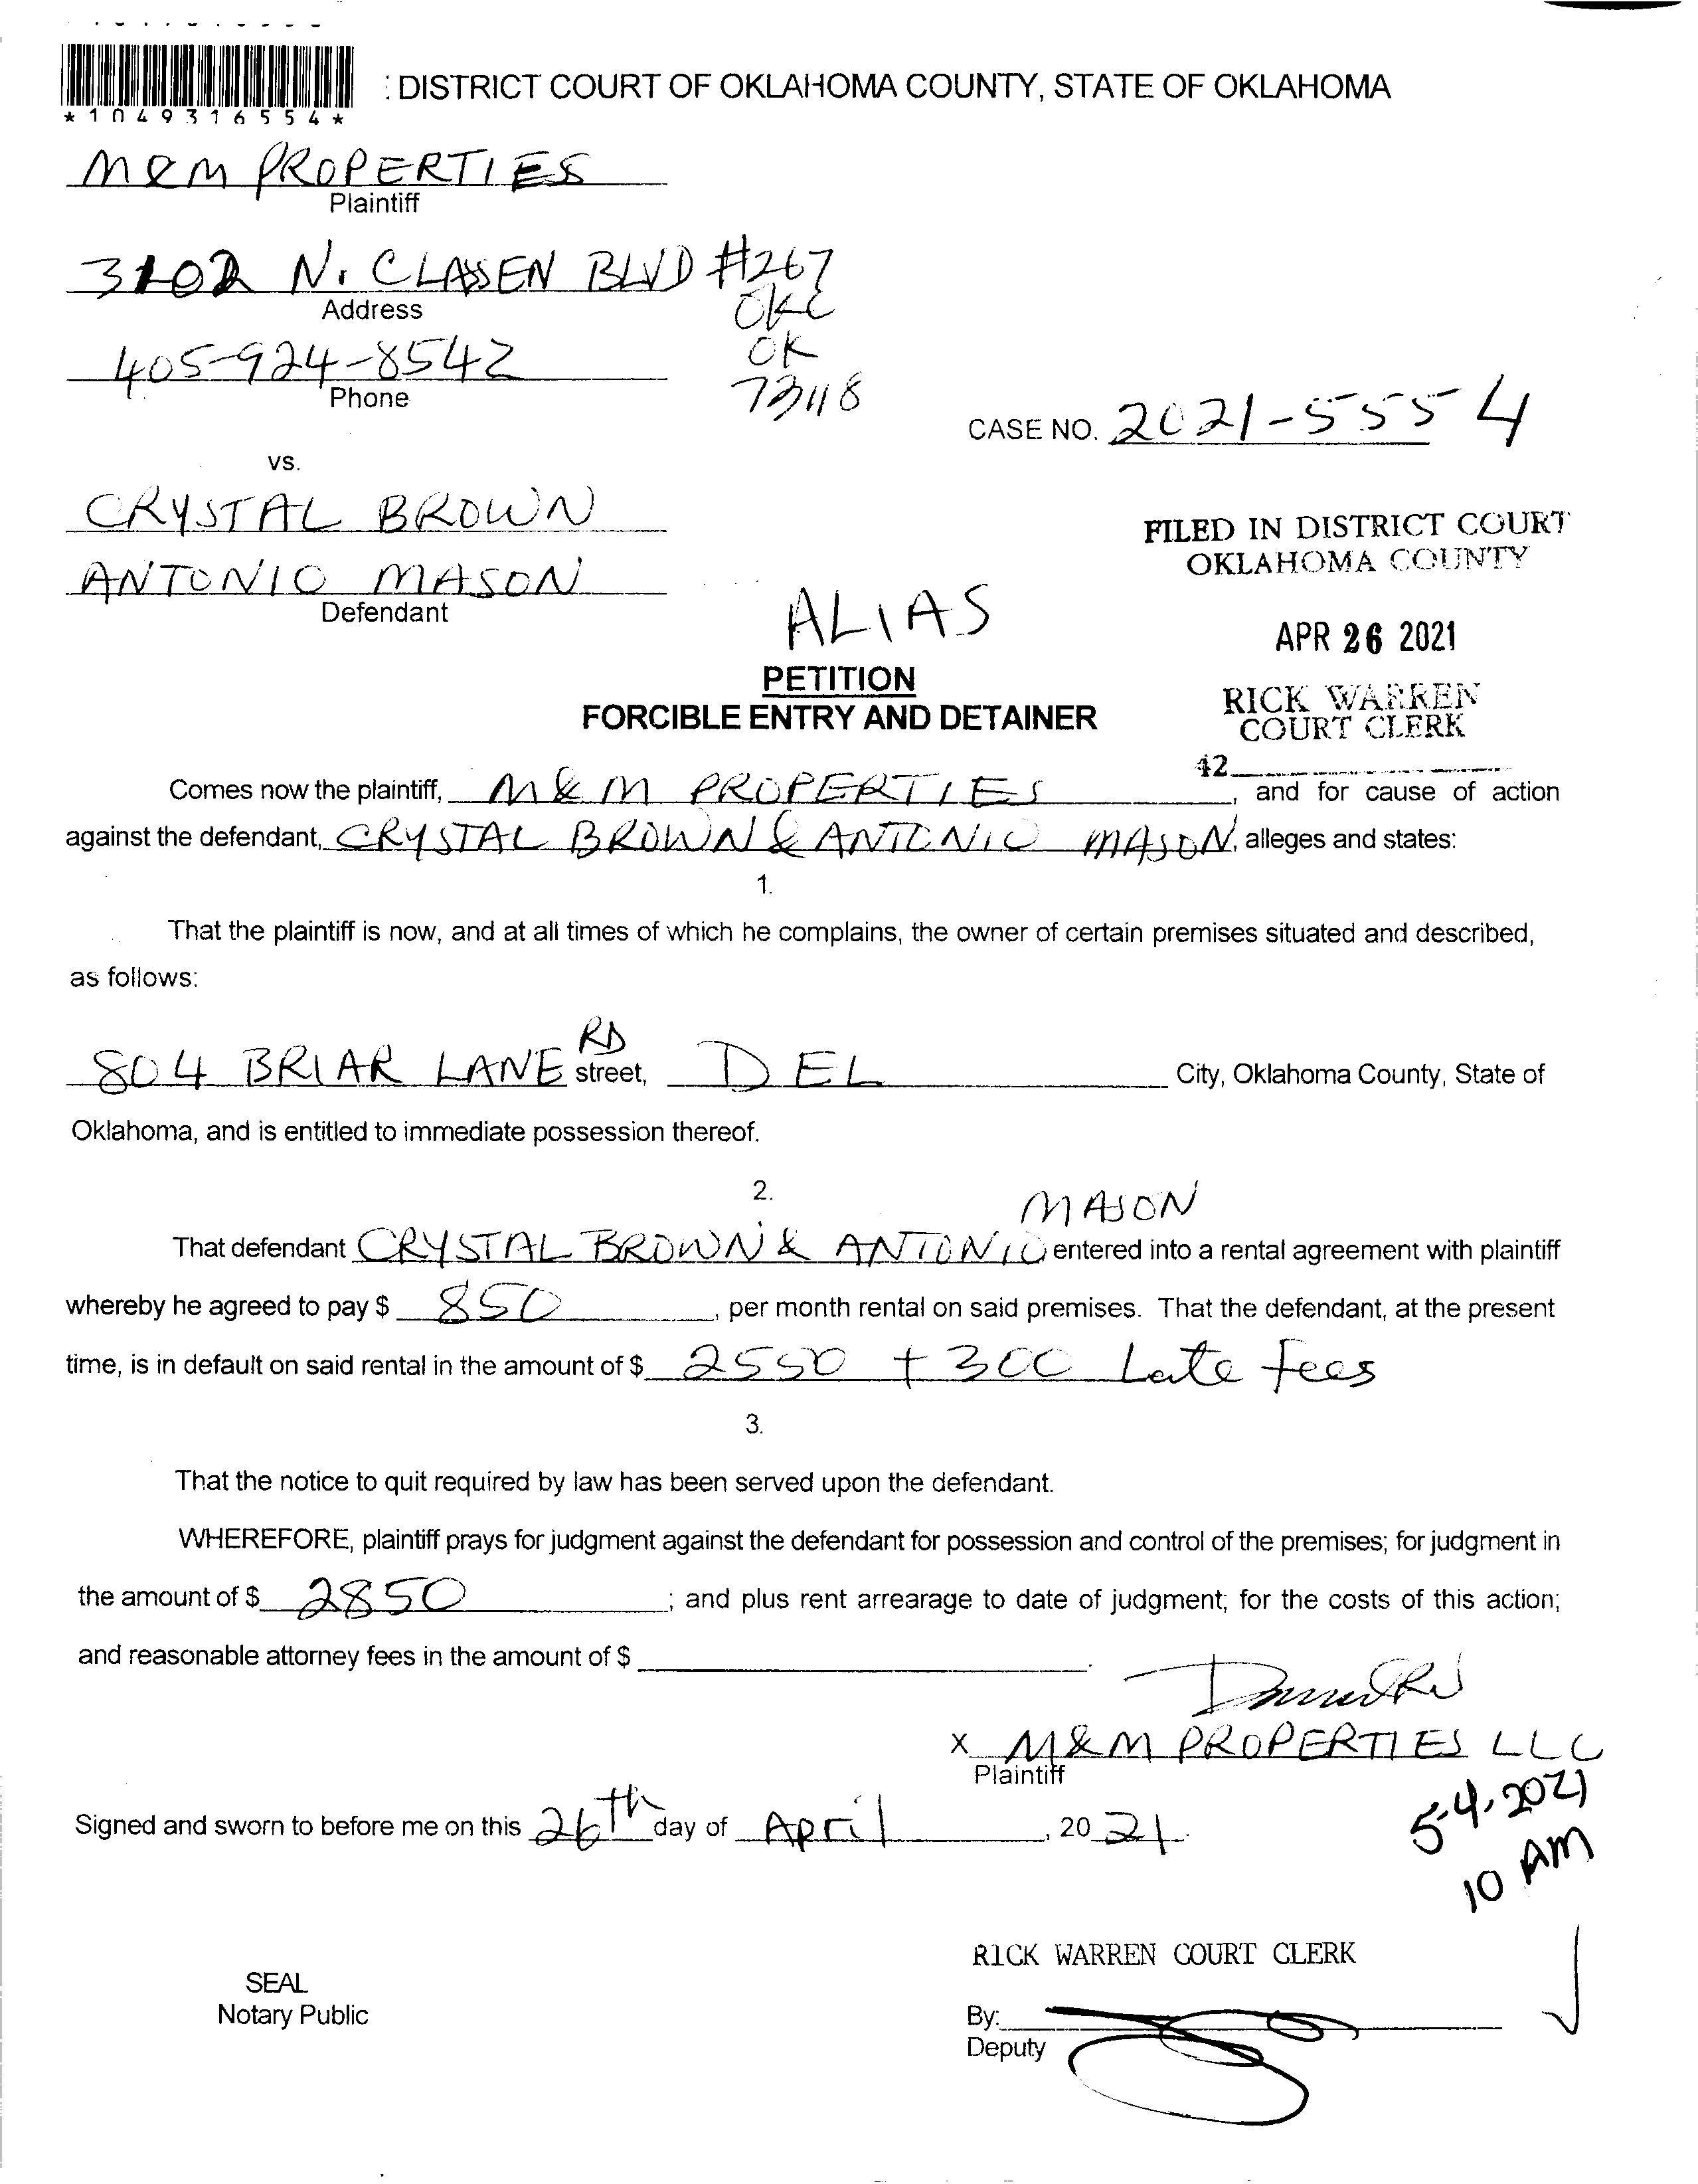 *1049316554*
: DISTRICT COURT OF OKLAHOMA COUNTY, STATE OF OKLAHOMA
M&M PROPERTIES
Plaintiff
3102 N. CLASSEN BLVD #267
Address
OKC
OK
405-924-8542
Phone
73118
CASE NO. 2021-5554
vs.
CRYSTAL BROWN
ANTONIO MASON
Defendant
FILED IN DISTRICT COURT
OKLAHOMA COUNTY
ALIAS
APR 26 2021
PETITION
FORCIBLE ENTRY AND DETAINER
RICK WARREN
COURT CLERK
42
Comes now the plaintiff, M&M PROPERTIES, and for cause of action
against the defendant, CRYSTAL BROWN & ANTONIO MASON, alleges and states:
1.
That the plaintiff is now, and at all times of which he complains, the owner of certain premises situated and described,
as follows:
RD
804 BRIAR LANE street, DEL City, Oklahoma County, State of
Oklahoma, and is entitled to immediate possession thereof.
2.
MASON
That defendant CRYSTAL BROWN & ANTONIO entered into a rental agreement with plaintiff
whereby he agreed to pay $ 850, per month rental on said premises. That the defendant, at the present
time, is in default on said rental in the amount of $ 2550 + 300 Late fees
3.
That the notice to quit required by law has been served upon the defendant.
WHEREFORE, plaintiff prays for judgment against the defendant for possession and control of the premises; for judgment in
the amount of $ 2850; and plus rent arrearage to date of judgment; for the costs of this action;
and reasonable attorney fees in the amount of $ .
x M&M PROPERTIES LLC
Plaintiff
5-4-2021
10 AM
Signed and sworn to before me on this 26th day of April, 2021.
RICK WARREN COURT CLERK
SEAL
Notary Public
By:
Deputy